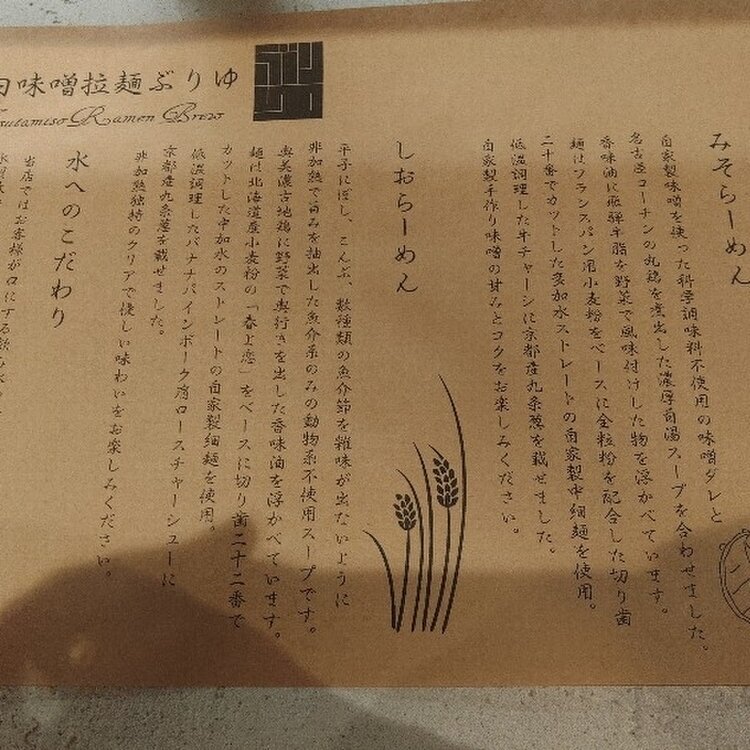 味噌拉麺ぶりゆ
Ramen Brew
みそらーめん
自家製味噌を使った科学調味料不使用の味噌ダレと
名古屋コーチンの丸鶏を煮出した濃厚白湯スープを合わせました。
香味油に飛騨牛脂を野菜で風味付けした物を浮かべています。
麺はフランスパン用小麦粉をベースに全粒粉を配合した切り歯
二十番でカットした多加水ストレートの自家製中細麺を使用。
低温調理した牛チャーシーに京都産九条葱を載せました。
自家製手作り味噌の甘みとコクをお楽しみください。
しおらーめん
平子にぼし、こんぶ、数種類の魚介節を雑味が出ないように
非加熱で旨みを抽出した魚介系のみの動物系不使用スープです。
奥美濃古地鶏に野菜で奥行きを出した香味油を浮かべています。
麺は北海道産小麦粉の「春よ恋」をベースに切り歯二十二番で
カットした中加水のストレートの自家製細麺を使用。
低温調理したバナナパインポーク肩ロースチャーシューに
京都産九条葱を載せました。
非加熱独特のクリアで優しい味わいをお楽しみください。
水へのこだわり
当店ではお客様が口にする飲み水